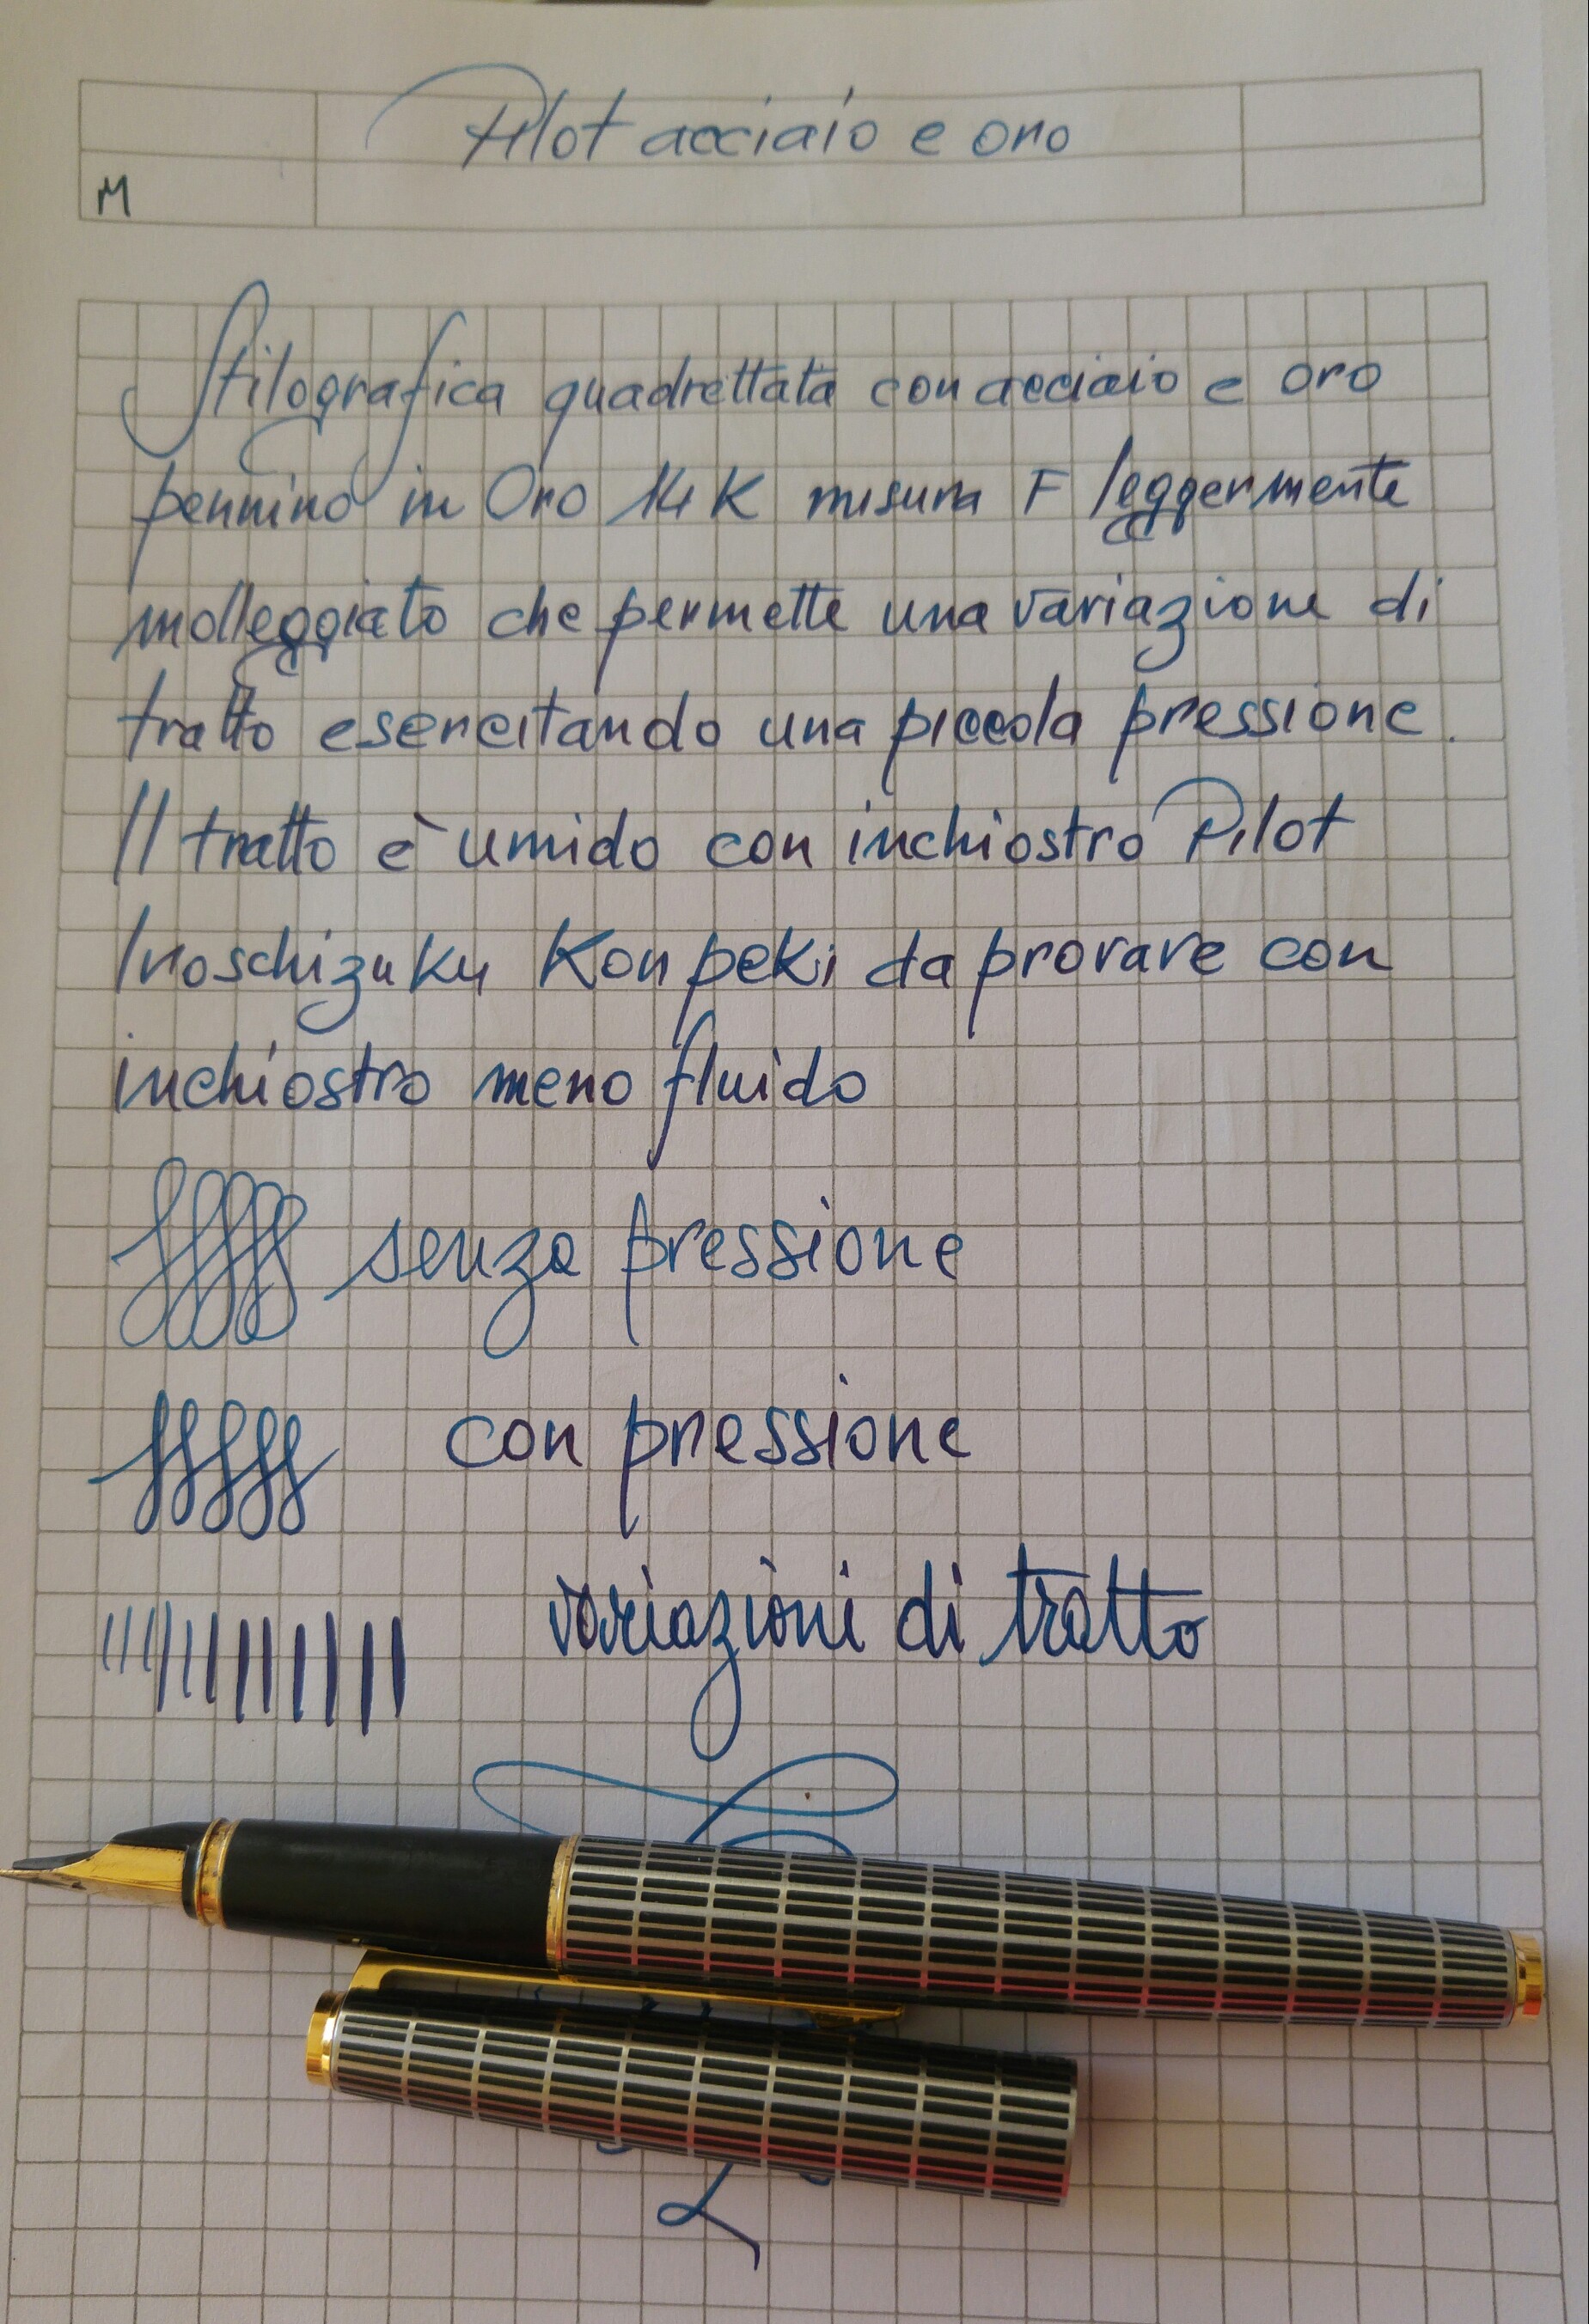 Pilot acciaio e oro
M
Stilografica quadrettata con acciaio e oro
pennino in Oro 14 K misura F leggermente
molleggiato che permette una variazione di
tratto esercitando una piccola pressione.
Il tratto è umido con inchiostro Pilot
Iroschizuku Kon peki da provare con
inchiostro meno fluido
senza pressione
con pressione
variazioni di tratto